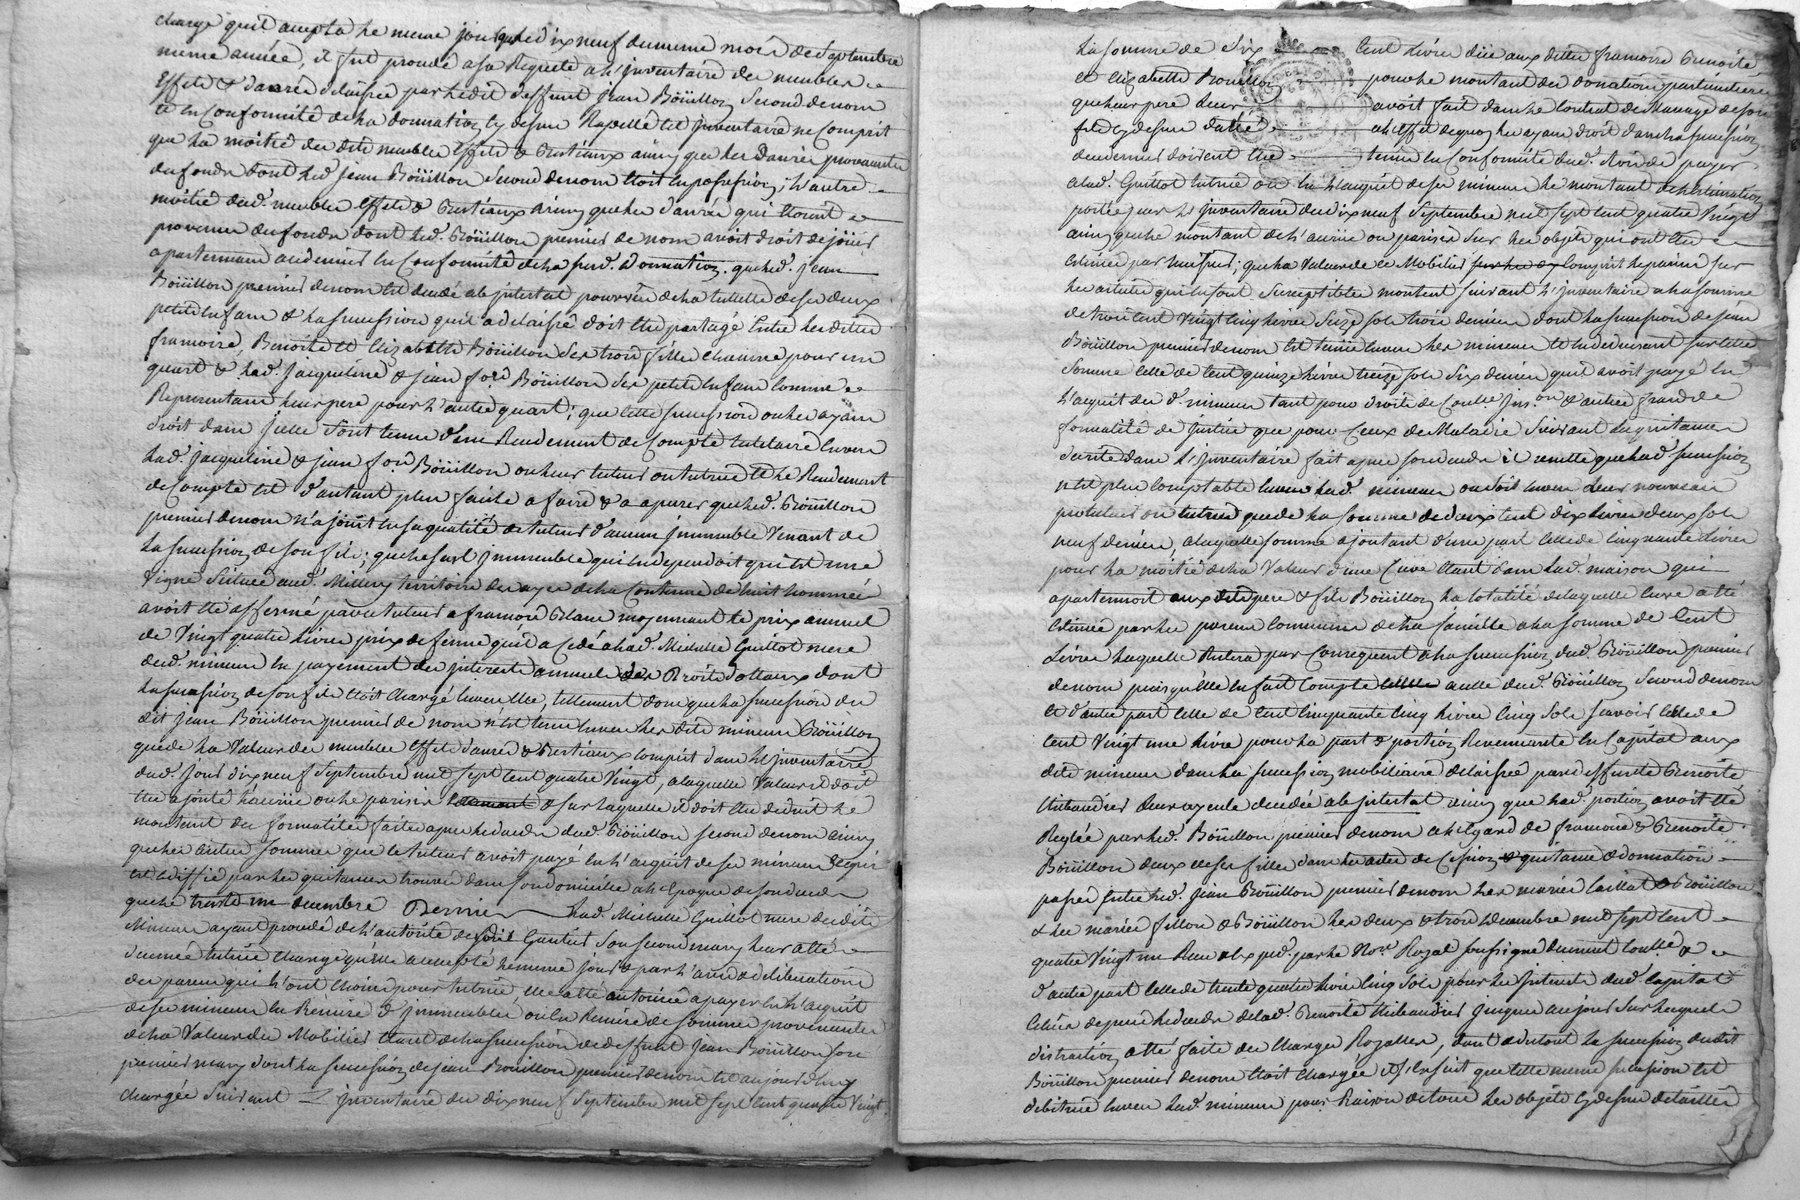 charge qu'il accepta le meme jour que le dix neuf du meme mois de septembre
meme année, il fut procedé a sa Requete a l'inventaire des meubles
effets & danrés delaissés par ledit deffunt jean Boüillon second de nom
et en Conformité de la donnation cy dessus Rapellé cet inventaire ne Comprit
que la moitié des dits meubles effets & Bestiaux ainsy que les danrés provenantes
des fonds dont led. jean Boüillon second de nom etoit en possession; L'autre
moitié desd. meubles effets & Bestiaux ainsy que les danrés qui etoient
provenues des fonds dont led. Boüillon premier de nom avoit droit de joüir
apartenant au dernier en Conformité de la susd. donnation. que led. jean
Boüillon premier de nom est decedé abjntestat pourvu de la tutelle de ses deux
petits enfans & la succession qu'il a delaissé doit etre partagé entre lesdites
françoise, Benoite et Elizabeth Boüillon ses trois filles chacune pour un
quart & lesd. jacqueline & jean fois Boüillon ses petits enfans comme
Representans leur pere pour l'autre quart; que cette succession ou les ayans
droit dans jcelle sont tenus d'un Rendement de Compte tutelaire envers
lesd. jacqueline & jean fois Boüillon ou leur tuteur ou tutrice et le Rendement
de Compte est d'autant plus facile a faire & a apurer que led. Boüillon
premier de nom n'a joüit en sa qualité de tuteur d'aucun jmmeuble venant de
la succession de son fils; que le seul jmmeuble qui en dependoit qui est une
vigne située aud. Millery territoire des ayes de la Contenue de huit hommées
avoit été affermé par ce tuteur a françois Blanc moyennant le prix annuel
de vingt quatre livres prix de ferme qu'il a cedé a lad. Michelle Guillot mere
desd. mineurs en payement des jnterets annuels des Droits dottaux dont
la succession de son fils etoit chargé envers elle, tellement donc que la succession du
dit jean Boüillon premier de nom n'est tenue envers les dits mineurs Boüillon
que de la valeur des meubles effets danrés & Bestiaux compris dans l'jnventaire
dud. jour dix neuf septembre mil sept cent quatre vingt, a laquelle valeur il doit
etre ajouté l'accrüe ou le parisis & sur laquelle il doit etre deduit le
montant des formalités faites apres le deces dud. Boüillon second de nom ainsy
que les autres sommes que ce tuteur avoit payé en l'acquit de ses mineurs
justiffié par les quitances trouvés dans son domicille a l'epoque de son deces
que le trente un decembre Dernier lad. Michelle Guillot mere desdits
Mineurs ayant procedé de l'autorité de Gautier son second mary leur a été
donnée tutrice charge qu'elle a accepté le meme jour & par l'avis & deliberation
des parens qui l'ont choisie pour tutrice, elle a été autorisée a payer en l'acquit
de ses mineurs en Remise d'jmmeubles ou en Remise de sommes provenantes
de la valeur des Mobiliers etant de la succession de deffunt jean Boüillon son
premier mary dont la succession de jean Boüillon premier de nom est aujourd'huy
chargée suivant L'jnventaire du dix neuf septembre mil sept cent quatre vingt
La somme de six cent livres düe aux dittes françoise Benoite
et Elizabette Boüillon pour le montant des donations particulieres
que leur pere leur avoit fait dans le contrat de Mariage de son
fils cy dessus datté a l'effet de quoy les ayans droit dans la succession
du dernier doivent etre tenus en Conformité dud. avis de payer
a lad. Guillot tutrice ou en l'acquit de ses mineurs le montant de l'estimation
portée par l'jnventaire du dix neuf septembre mil sept cent quatre vingt
ainsy que le montant de l'accrüe ou parisis sur les objets qui ont été
estimés par ; que la valeur de ce Mobilier Comprit le parisis sur
les articles qui en sont susceptibles montent suivant l'jnventaire a la somme
de trois cent vingt cinq livres seize sols trois deniers dont la succession de jean
Boüillon premier de nom est tenüe envers les mineurs et en deduisant sur cette
somme celle de cent quinze livres treize sols six deniers qu'il avoit payé en
l'acquit des d. mineurs tant pour droits de Conlle. Jns.on & autres frais de
formalité de justice que pour ceux de Maladie suivant les quitances
decrites dans l'jnventaire fait apres son deces il resulte que lad. succession
n'est plus comptable envers lesd. mineurs ou soit envers leur nouveau
protuteur ou tutrice que de la somme de deux cent dix livres deux sols
neuf deniers, a laquelle somme ajoutant d'une part celle de cinquante livres
pour la moitié de la valeur d'une Cuve etant dans lad. maison qui
apartenoit aux dits pere & fils Boüillon la totalité de laquelle cuve a été
estimée par les parens communs de la famille a la somme de cent
Livres laquelle Restera par consequent a la succession dud. Boüillon premier
de nom puisqu'elle en fait compte a celle dud. Boüillon second de nom
et d'autre part celle de cent cinquante cinq livres cinq sols sçavoir celle de
cent vingt une livre pour la part & portion Revenante en Capital aux
dits mineurs dans la succession mobiliaire delaissée par deffunte Benoite
thibaudier leur ayeule decedée abjntestat ainsy que lad. portion avoit été
Reglée par led. Boüillon premier de nom a l'egard de françoise & Benoite
Boüillon deux de ses filles dans les actes de Cession & quitance & donnation
passés entre led. jean Boüillon premier de nom les mariés Caillat & Boüillon
& les mariés fillon & Boüillon les deux & trois decembre mil sept cent
quatre vingt un Reçu & exped. par le No.re Royal soussigné duement Conllé. &
d'autre part celle de trente quatre livres cinq sols pour les jnterets dud. capital
echus depuis le deces de lad. Benoite thibaudier jusques au jour sur lesquels
distraction a été faite des charges Royalles, dont du tout la succession dudit
Boüillon premier de nom etoit chargée il s'ensuit que cette meme succession est
debitrice envers lesd. mineurs pour Raison de tous les objets cy dessus detaillés